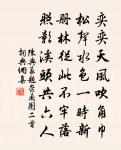 奕奕天風吹角巾
松聲水色一時新
山林從此不牢落
照影溪頭共六人
陳與義題崇蘭圖二首
詞典網集